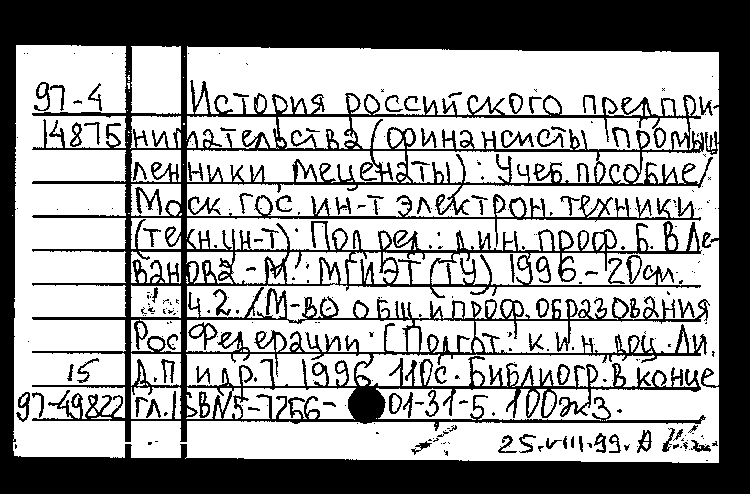 97-4 История российского предпри-
14875 нимательства (финансисты промыш
ленники, меценаты): Учеб. пособие/
Моск. гос. ин-т электрон. техники
(техн. ун-т); Под ред.: д.и.н. проф. Б. В Ле-
ванова. - М.: МГИЭТ (ТУ), 1996. - 20см.
Ч.2. / М-во общ. и проф. образования
Рос Федерации; [Подгот.: к.и.н., доц. Ли.
15 Д.П и др.]. 1996. 110с. Библиогр. в конце
97-49822 гл. ISBN 5-7256- 01-31-5. 100экз.
25.VIII.99.